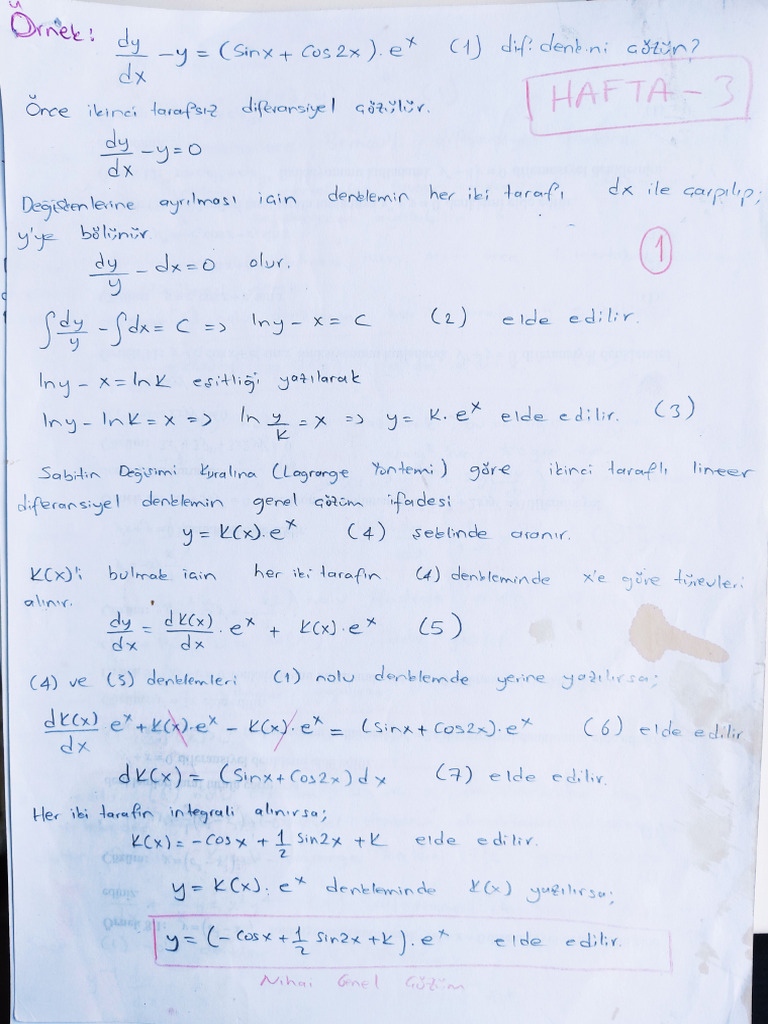 Örnek: dy/dx - y = (Sinx + Cos2x). e^x (1) dif. denk.ni çözün?
HAFTA - 3
Önce ikinci tarafsız diferansiyel çözülür.
dy/dx - y = 0
Değişkenlerine ayrılması için denklemin her iki tarafı dx ile çarpılıp;
y'ye bölünür.
1
dy/y - dx = 0 olur.
∫dy/y - ∫dx = C => lny - x = C (2) elde edilir.
lny - x = lnK eşitliği yazılarak
lny - lnK = x => ln y/K = x => y = K. e^x elde edilir. (3)
Sabitin Değişimi Kuralına (Lagrange Yöntemi) göre ikinci taraflı lineer
diferansiyel denklemin genel çözüm ifadesi
y = K(x). e^x (4) şeklinde aranır.
K(x)'i bulmak için her iki tarafın (4) denkleminde x'e göre türevleri
alınır.
dy/dx = dK(x)/dx . e^x + K(x). e^x (5)
(4) ve (5) denklemleri (1) nolu denklemde yerine yazılırsa;
dK(x)/dx e^x + K(x). e^x - K(x). e^x = (Sinx + Cos2x). e^x (6) elde edilir
dK(x) = (Sinx + Cos2x) dx (7) elde edilir.
Her iki tarafın integrali alınırsa;
K(x) = -Cosx + 1/2 Sin2x + K elde edilir.
y = K(x). e^x denkleminde K(x) yazılırsa;
y = (-Cosx + 1/2 Sin2x + K). e^x elde edilir.
Nihai Genel Çözüm